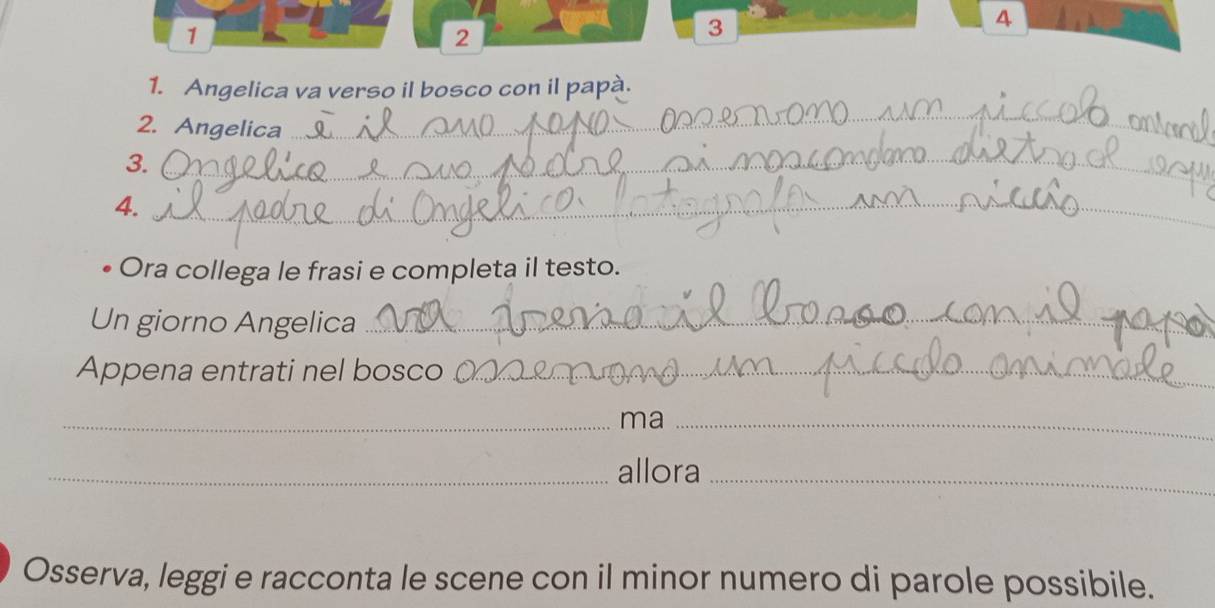 1 2 3 4
1. Angelica va verso il bosco con il papà.
2. Angelica e il suo papà osservano un piccolo
3. Angelica e suo padre si nascondano dietro
4. il padre di Angelica. fotografa un riccio
• Ora collega le frasi e completa il testo.
Un giorno Angelica va verso il bosco con il papà
Appena entrati nel bosco osservano um piccolo animale
ma
allora
Osserva, leggi e racconta le scene con il minor numero di parole possibile.